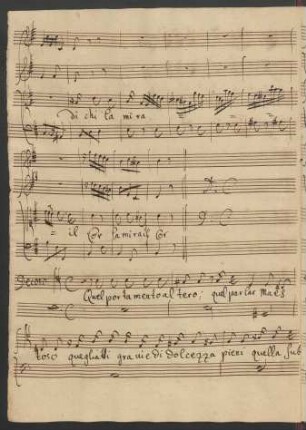 di chi la mira
il Cor la mira il Cor
Quel portamento altero; quel parlar Maes
toso quegl'atti gravi e di dolcezza pieni quella sub